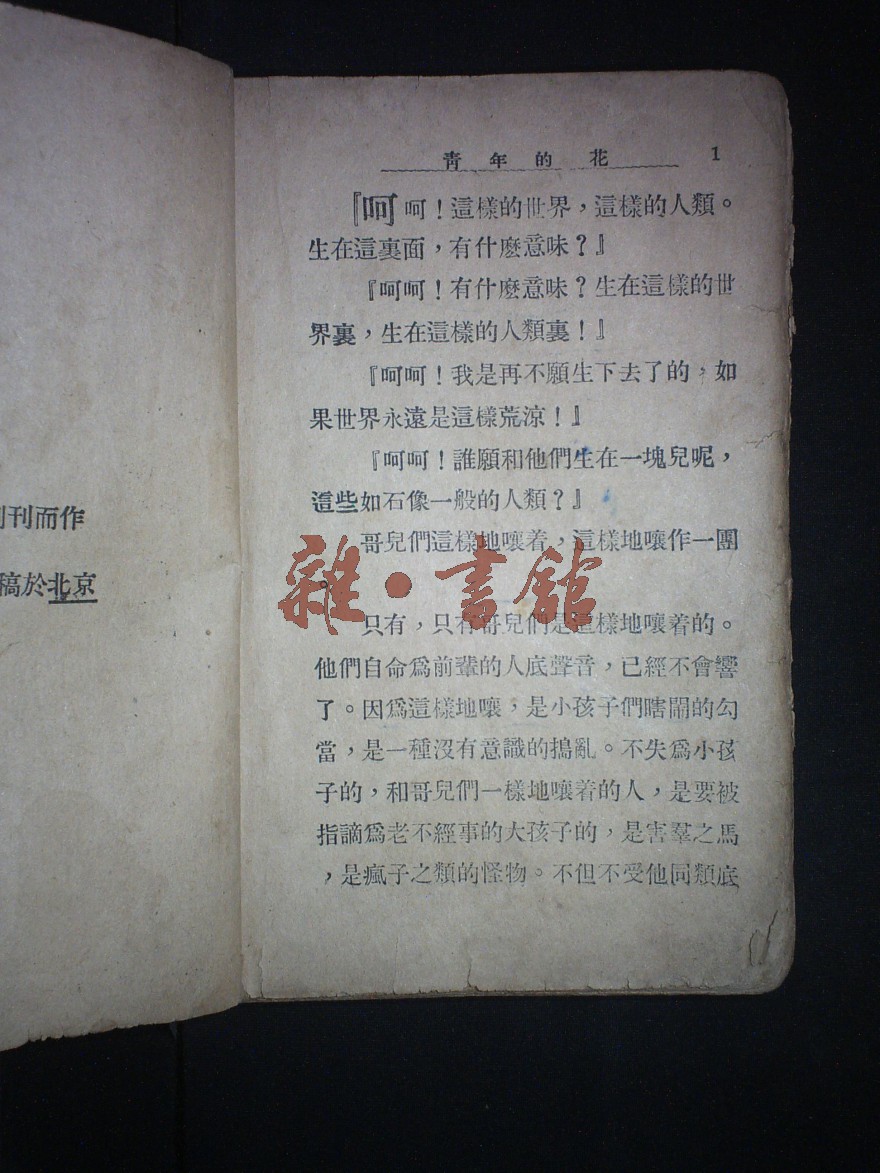 刊而作
稿於北京
青年的花 1
『呵呵！這樣的世界，這樣的人類。
生在這裏面，有什麽意味？』
『呵呵！有什麽意味？生在這樣的世
界裏，生在這樣的人類裏！』
『呵呵！我是再不願生下去了的，如
果世界永遠是這樣荒涼！』
『呵呵！誰願和他們生在一塊兒呢，
這些如石像一般的人類？』
哥兒們這樣地嚷着，這樣地嚷作一團
。
雜·書館
只有，只有哥兒們是這樣地嚷着的。
他們自命爲前輩的人底聲音，已經不會響
了。因爲這樣地嚷，是小孩子們瞎鬧的勾
當，是一種沒有意識的搗亂。不失爲小孩
子的，和哥兒們一樣地嚷着的人，是要被
指謫爲老不經事的大孩子的，是害羣之馬
，是瘋子之類的怪物。不但不受他同類底